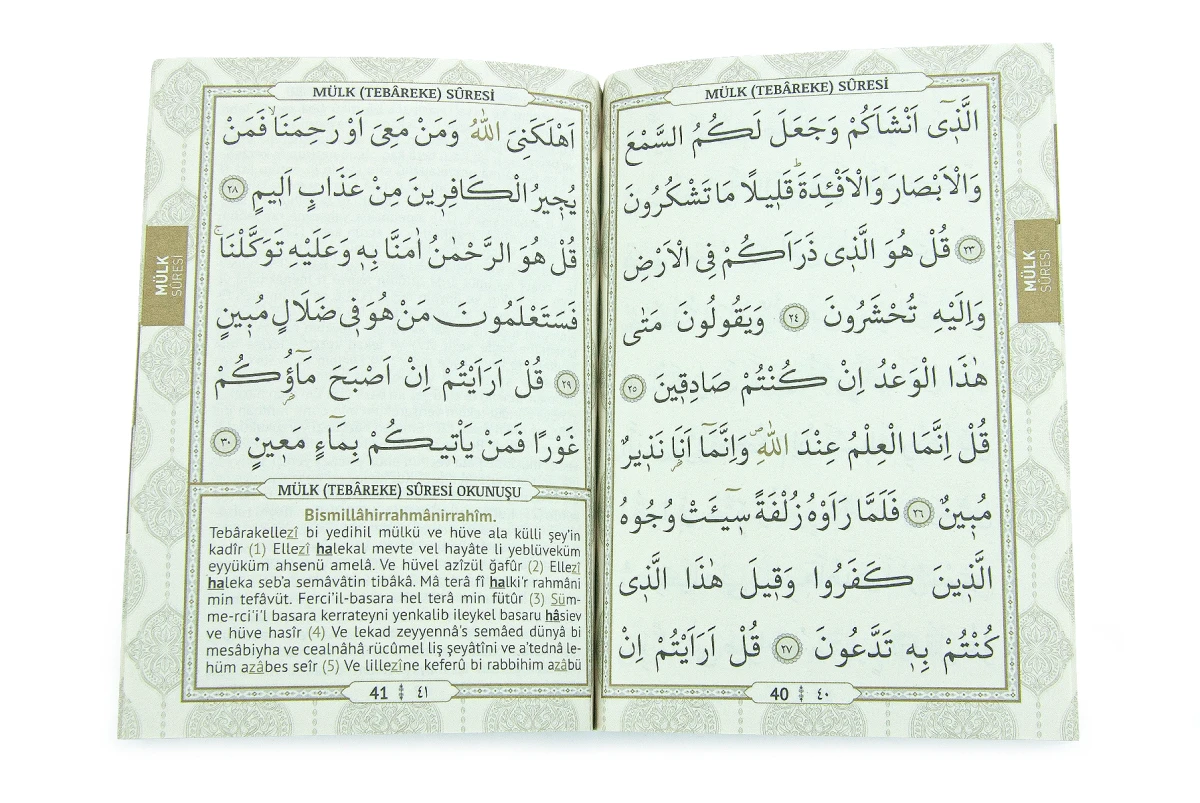 MÜLK (TEBÂREKE) SÛRESİ
اَلَّذ۪ٓى اَنْشَاَكُمْ وَجَعَلَ لَكُمُ السَّمْعَ
وَالْاَبْصَارَ وَالْاَفْـِٔدَةَۜ قَل۪يلًا مَا تَشْكُرُونَ
﴿٢٣﴾ قُلْ هُوَ الَّذ۪ى ذَرَاَكُمْ فِى الْاَرْضِ
وَاِلَيْهِ تُحْشَرُونَ ﴿٢٤﴾ وَيَقُولُونَ مَتٰى
هٰذَا الْوَعْدُ اِنْ كُنْتُمْ صَادِق۪ينَ ﴿٢٥﴾
قُلْ اِنَّمَا الْعِلْمُ عِنْدَ اللّٰهِۖ وَاِنَّمَٓا اَنَا۬ نَذ۪يرٌ
مُب۪ينٌ ﴿٢٦﴾ فَلَمَّا رَاَوْهُ زُلْفَةً س۪ٓيـَٔتْ وُجُوهُ
الَّذ۪ينَ كَفَرُوا وَق۪يلَ هٰذَا الَّذ۪ى
كُنْتُمْ بِه۪ تَدَّعُونَ ﴿٢٧﴾ قُلْ اَرَاَيْتُمْ اِنْ
40 ٤٠
MÜLK
SÛRESİ
MÜLK (TEBÂREKE) SÛRESİ
اَهْلَكَنِىَ اللّٰهُ وَمَنْ مَعِىَ اَوْ رَحِمَنَاۙ فَمَنْ
يُج۪يرُ الْكَافِر۪ينَ مِنْ عَذَابٍ اَل۪يمٍ ﴿٢٨﴾
قُلْ هُوَ الرَّحْمٰنُ اٰمَنَّا بِه۪ وَعَلَيْهِ تَوَكَّلْنَاۚ
فَسَتَعْلَمُونَ مَنْ هُوَ ف۪ى ضَلَالٍ مُب۪ينٍ
﴿٢٩﴾ قُلْ اَرَاَيْتُمْ اِنْ اَصْبَحَ مَٓاؤُ۬كُمْ
غَوْرًا فَمَنْ يَأْت۪يكُمْ بِمَٓاءٍ مَع۪ينٍ ﴿٣٠﴾
MÜLK (TEBÂREKE) SÛRESİ OKUNUŞU
Bismillâhirrahmânirrahîm.
Tebârakellezî bi yedihil mülkü ve hüve ala külli şey'in
kadîr (1) Ellezî halekal mevte vel hayâte li yeblüveküm
eyyüküm ahsenü amelâ. Ve hüvel azîzül ğafûr (2) Ellezî
haleka seb'a semâvâtin tibâkâ. Mâ terâ fî halki'r rahmâni
min tefâvüt. Ferci'il-basara hel terâ min fütûr (3) Süm-
me-rci'i'l basara kerrateyni yenkalib ileykel basaru hâsiev
ve hüve hasîr (4) Ve lekad zeyyennâ's semâed dünyâ bi
mesâbiyha ve cealnâhâ rücûmel liş şeyâtîni ve a'tednâ le-
hüm azâbes seîr (5) Ve lillezîne keferû bi rabbihim azâbü
41 ٤١
MÜLK
SÛRESİ